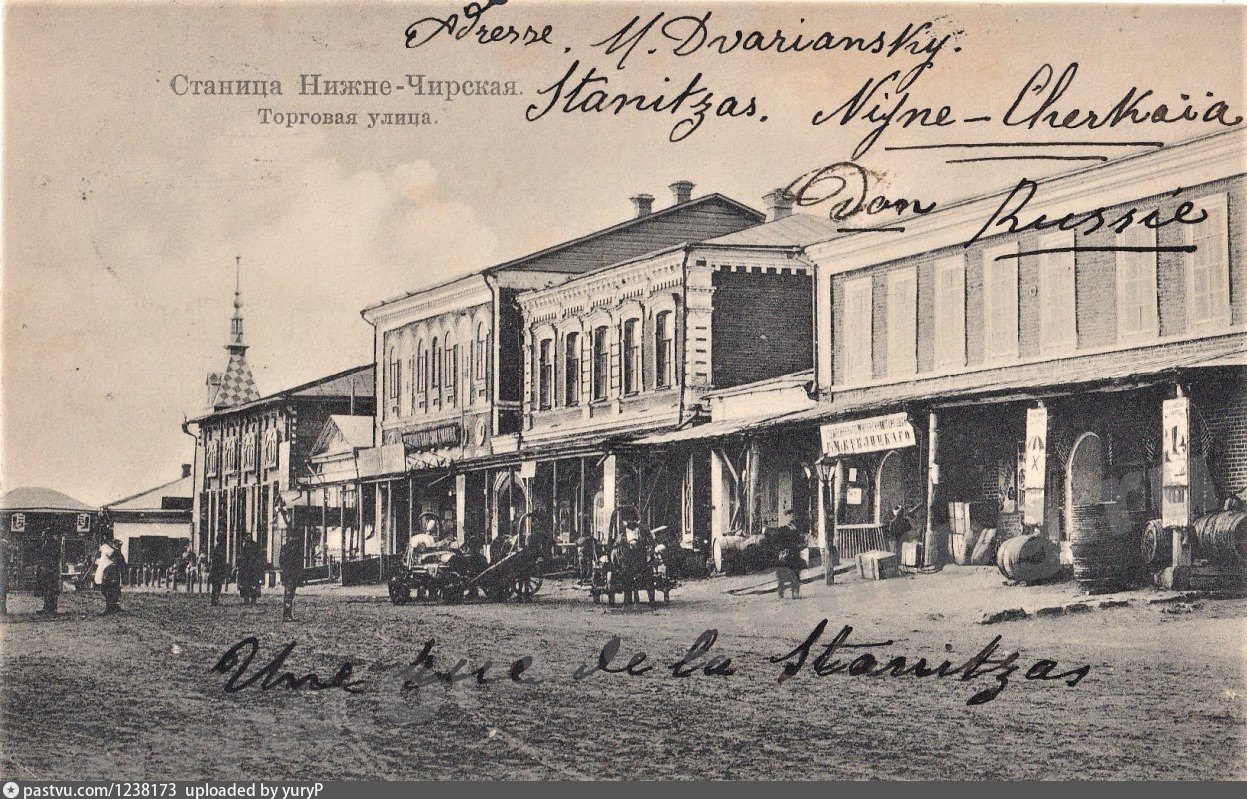 Adresse. M. Dvariansky.
Станица Нижне-Чирская.
Stanitzas. Nijne-Cherkaïa
Торговая улица.
Don Russie
Г.М.КУБЛИЦКАГО
Une rue de la Stanitzas
pastvu.com/1238173 uploaded by yuryP